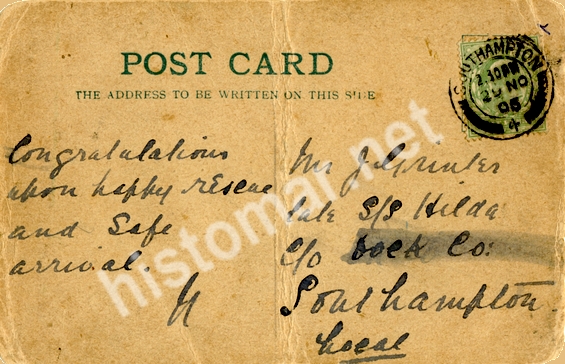 POST CARD
THE ADDRESS TO BE WRITTEN ON THIS SIDE
SOUTHAMPTON
2.30PM
29 NO
05
4
Congratulations
upon happy rescue
and Safe
arrival.
H
Mr J. Grinter
late S/S Hilda
c/o Dock Co:
Southampton
Local
histomar.net